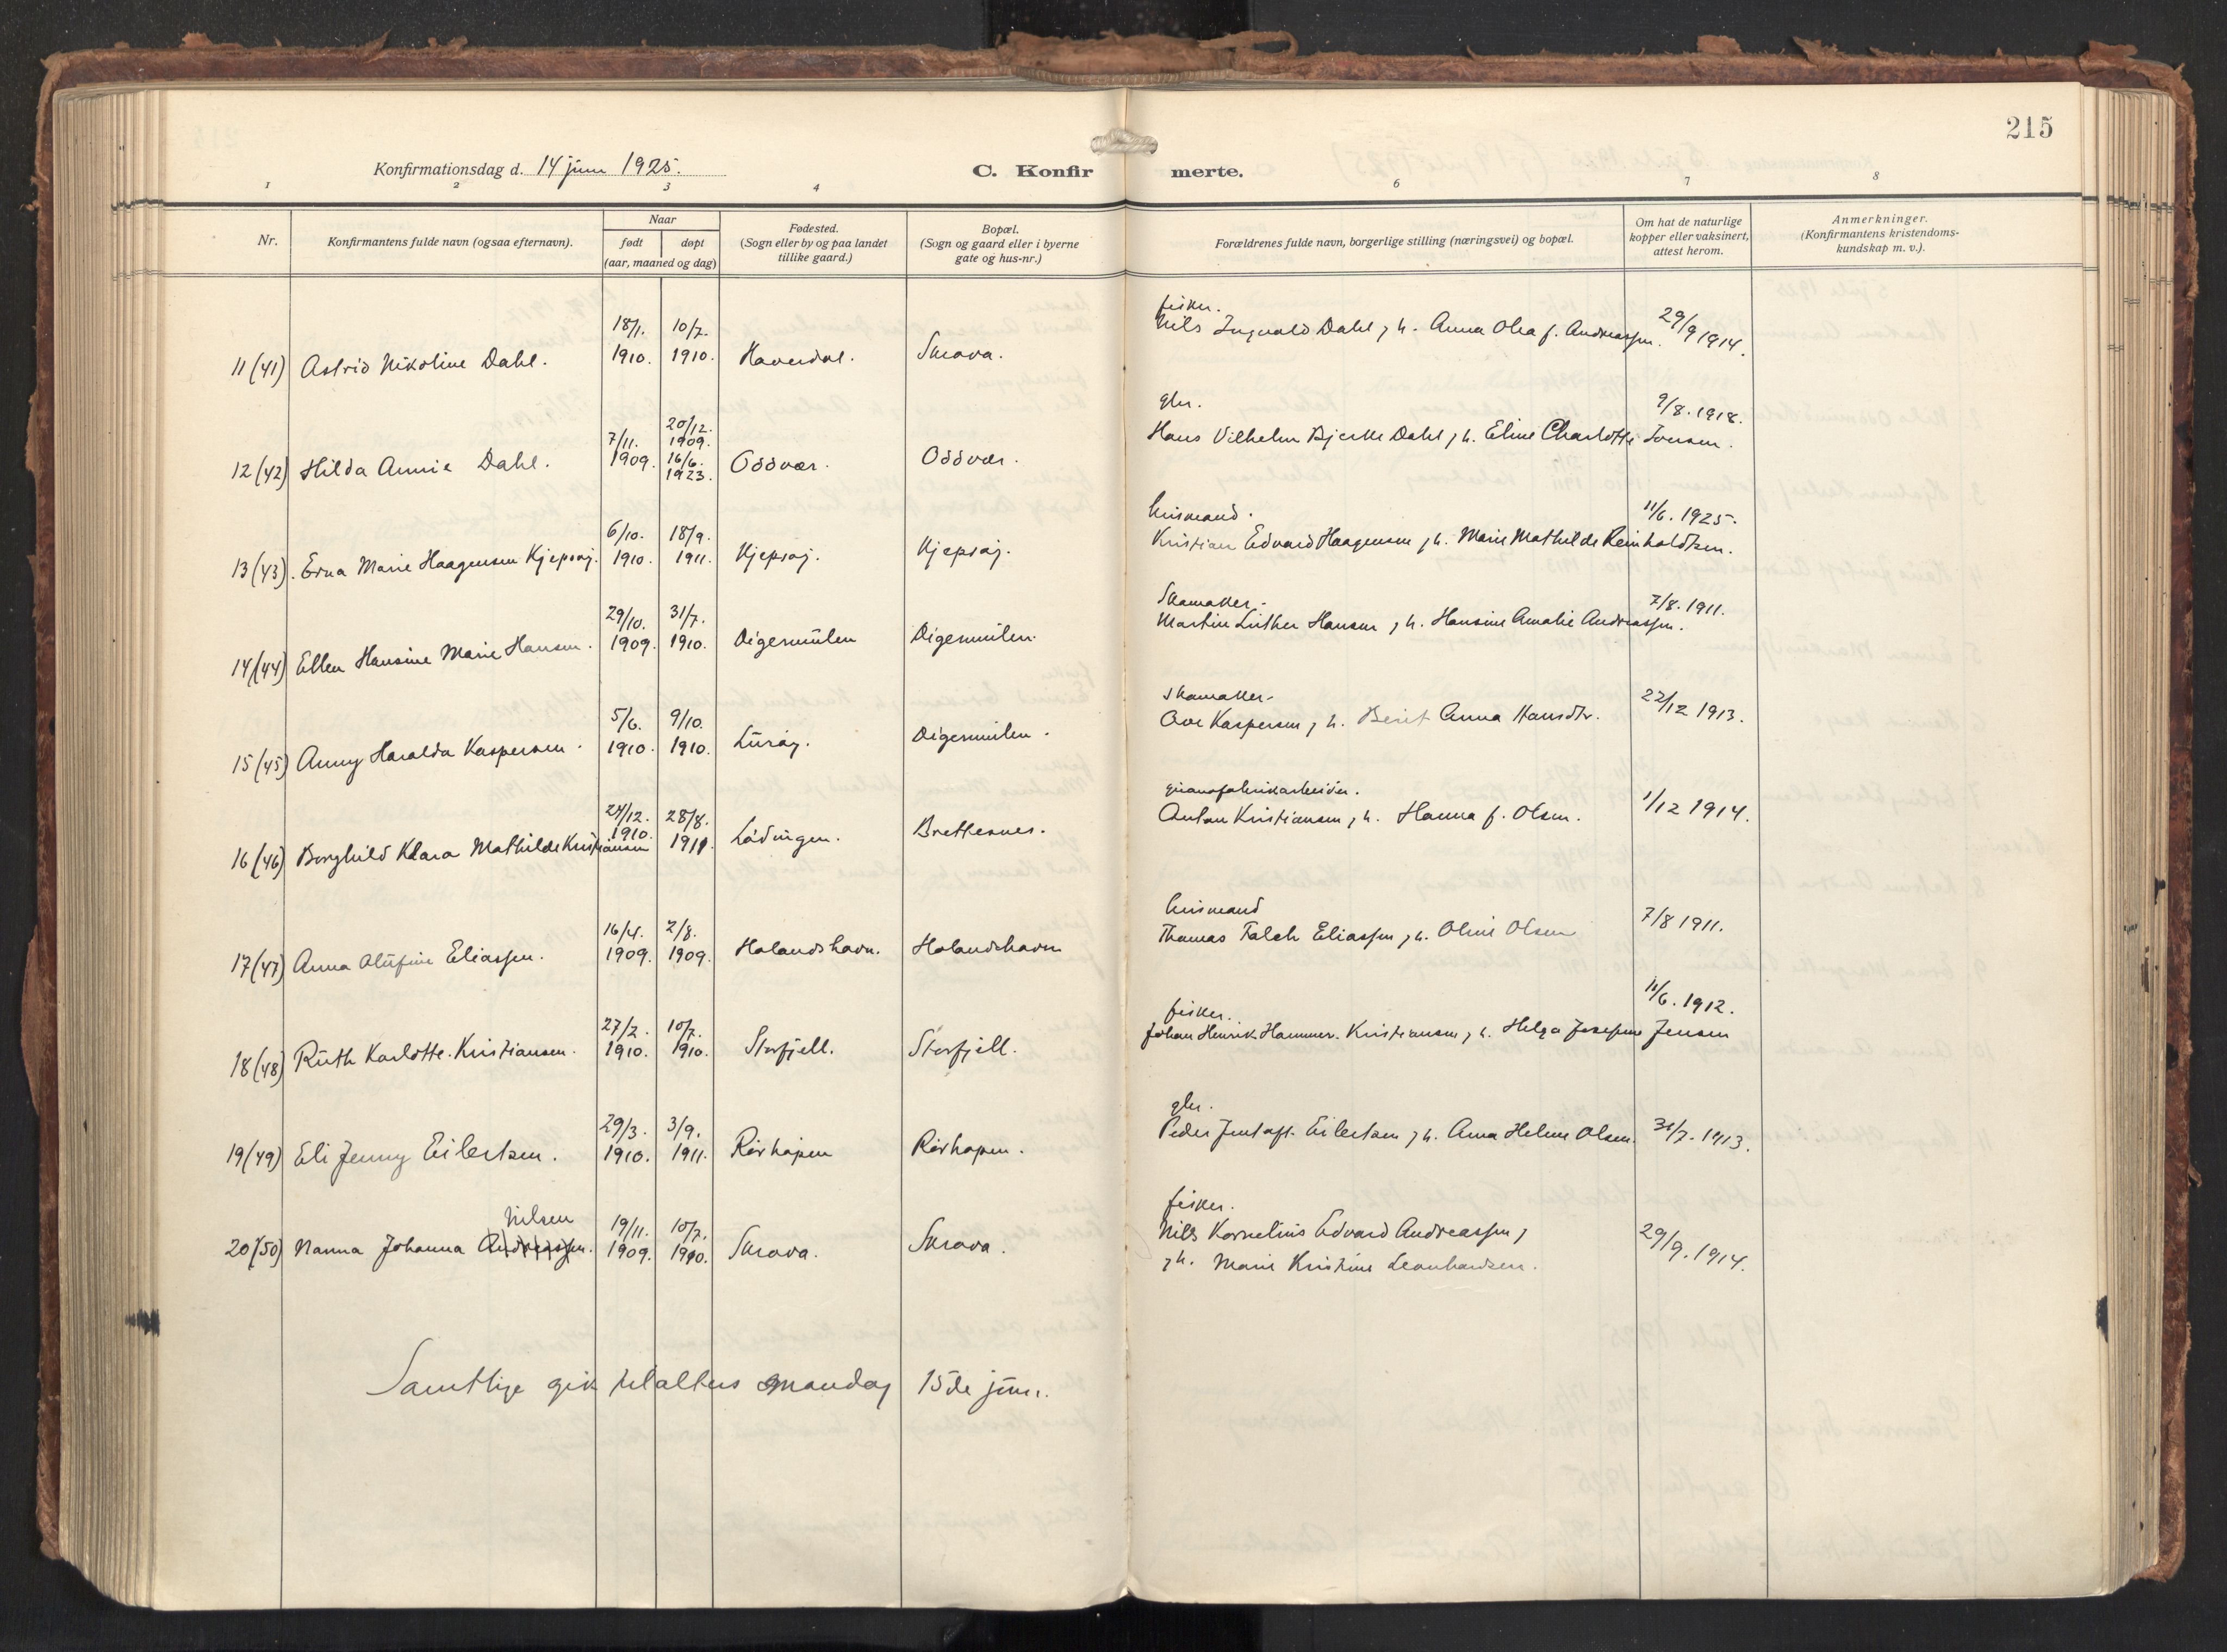 215
Konfirmationsdag d. 14 juni 1925.
C. Konfirmerte.
1 2 3 4 6 7 8
Nr.
Konfirmantens fulde navn (ogsaa efternavn).
Naar
født døpt
(aar, maaned og dag)
Fødested.
(Sogn eller by og paa landet
tillike gaard.)
Bopæl.
(Sogn og gaard eller i byerne
gate og hus-nr.)
Forældrenes fulde navn, borgerlige stilling (næringsvei) og bopæl.
Om hat de naturlige
kopper eller vaksinert,
attest herom.
Anmerkninger.
(Konfirmantens kristendoms-
kundskap m. v.).
18/1. 10/7. fisker. 29/9 1914.
11 (41) Astrid Nikoline Dahl. 1910. 1910. Haverdal. Skrova. Nils Ingvald Dahl, h. Anna Olea f. Andreassen.
20/12. gbr. 9/8. 1918.
7/11. 1909. Hans Vilhelm Bjerke Dahl, h. Eline Charlotte Iversen.
12 (42) Hilda Annie Dahl. 1909. 16/6. Oddvær. Oddvær.
1923.
6/10. 18/9. husmand. 11/6. 1925.
13 (43). Erna Marie Haagensen Kjepsøj. 1910. 1911. Kjepsøj. Kjepsøj. Kristian Edvard Haagensen, h. Marie Mathilde Reinholdtsen.
29/10. 31/7. Skomaker. 7/8. 1911.
14 (44) Ellen Hansine Marie Hansen. 1909. 1910. Digermulen Digermulen. Martin Luther Hansen, h. Hansine Amalie Andreassen.
5/6. 9/10. skomaker. 22/12 1913.
15 (45) Anny Haralda Kaspersen. 1910. 1910. Lurøy. Digermulen. Ove Kaspersen, h. Berit Anna Hansdtr.
24/12. 28/8. guanofabrikarbeider. 1/12 1914.
16 (46) Borghild Klara Mathilde Kristiansen 1910. 1911. Lødingen. Brettesnes. Anton Kristiansen, h. Hanna f. Olsen.
16/4. 2/8. husmand 7/8 1911.
17 (47) Anna Olufine Eliassen. 1909. 1909. Holandshavn. Holandshavn Thomas Falch Eliassen, h. Oline Olsen
27/2. 10/7. fisker. 11/6. 1912.
18 (48) Ruth Karlotte Kristiansen. 1910. 1910. Storfjell. Storfjell. Johan Henrik Hammer Kristiansen, h. Helga Josefine Jensen
29/3. 3/9. gbr. 31/7. 1913.
19 (49) Eli Jenny Eilertsen. 1910. 1911. Rørhopen Rørhopen. Peder Gustaf Eilertsen, h. Anna Helene Olsen.
Nilsen 19/11. 10/7. fisker. 29/9. 1914.
20 (50) Nanna Johanna Andreassen. 1909. 1910. Skrova. Skrova. Nils Kornelius Edvard Andreassen,
h. Marie Kristine Leonhardsen.
Samtlige gik til alters mandag 15de juni.